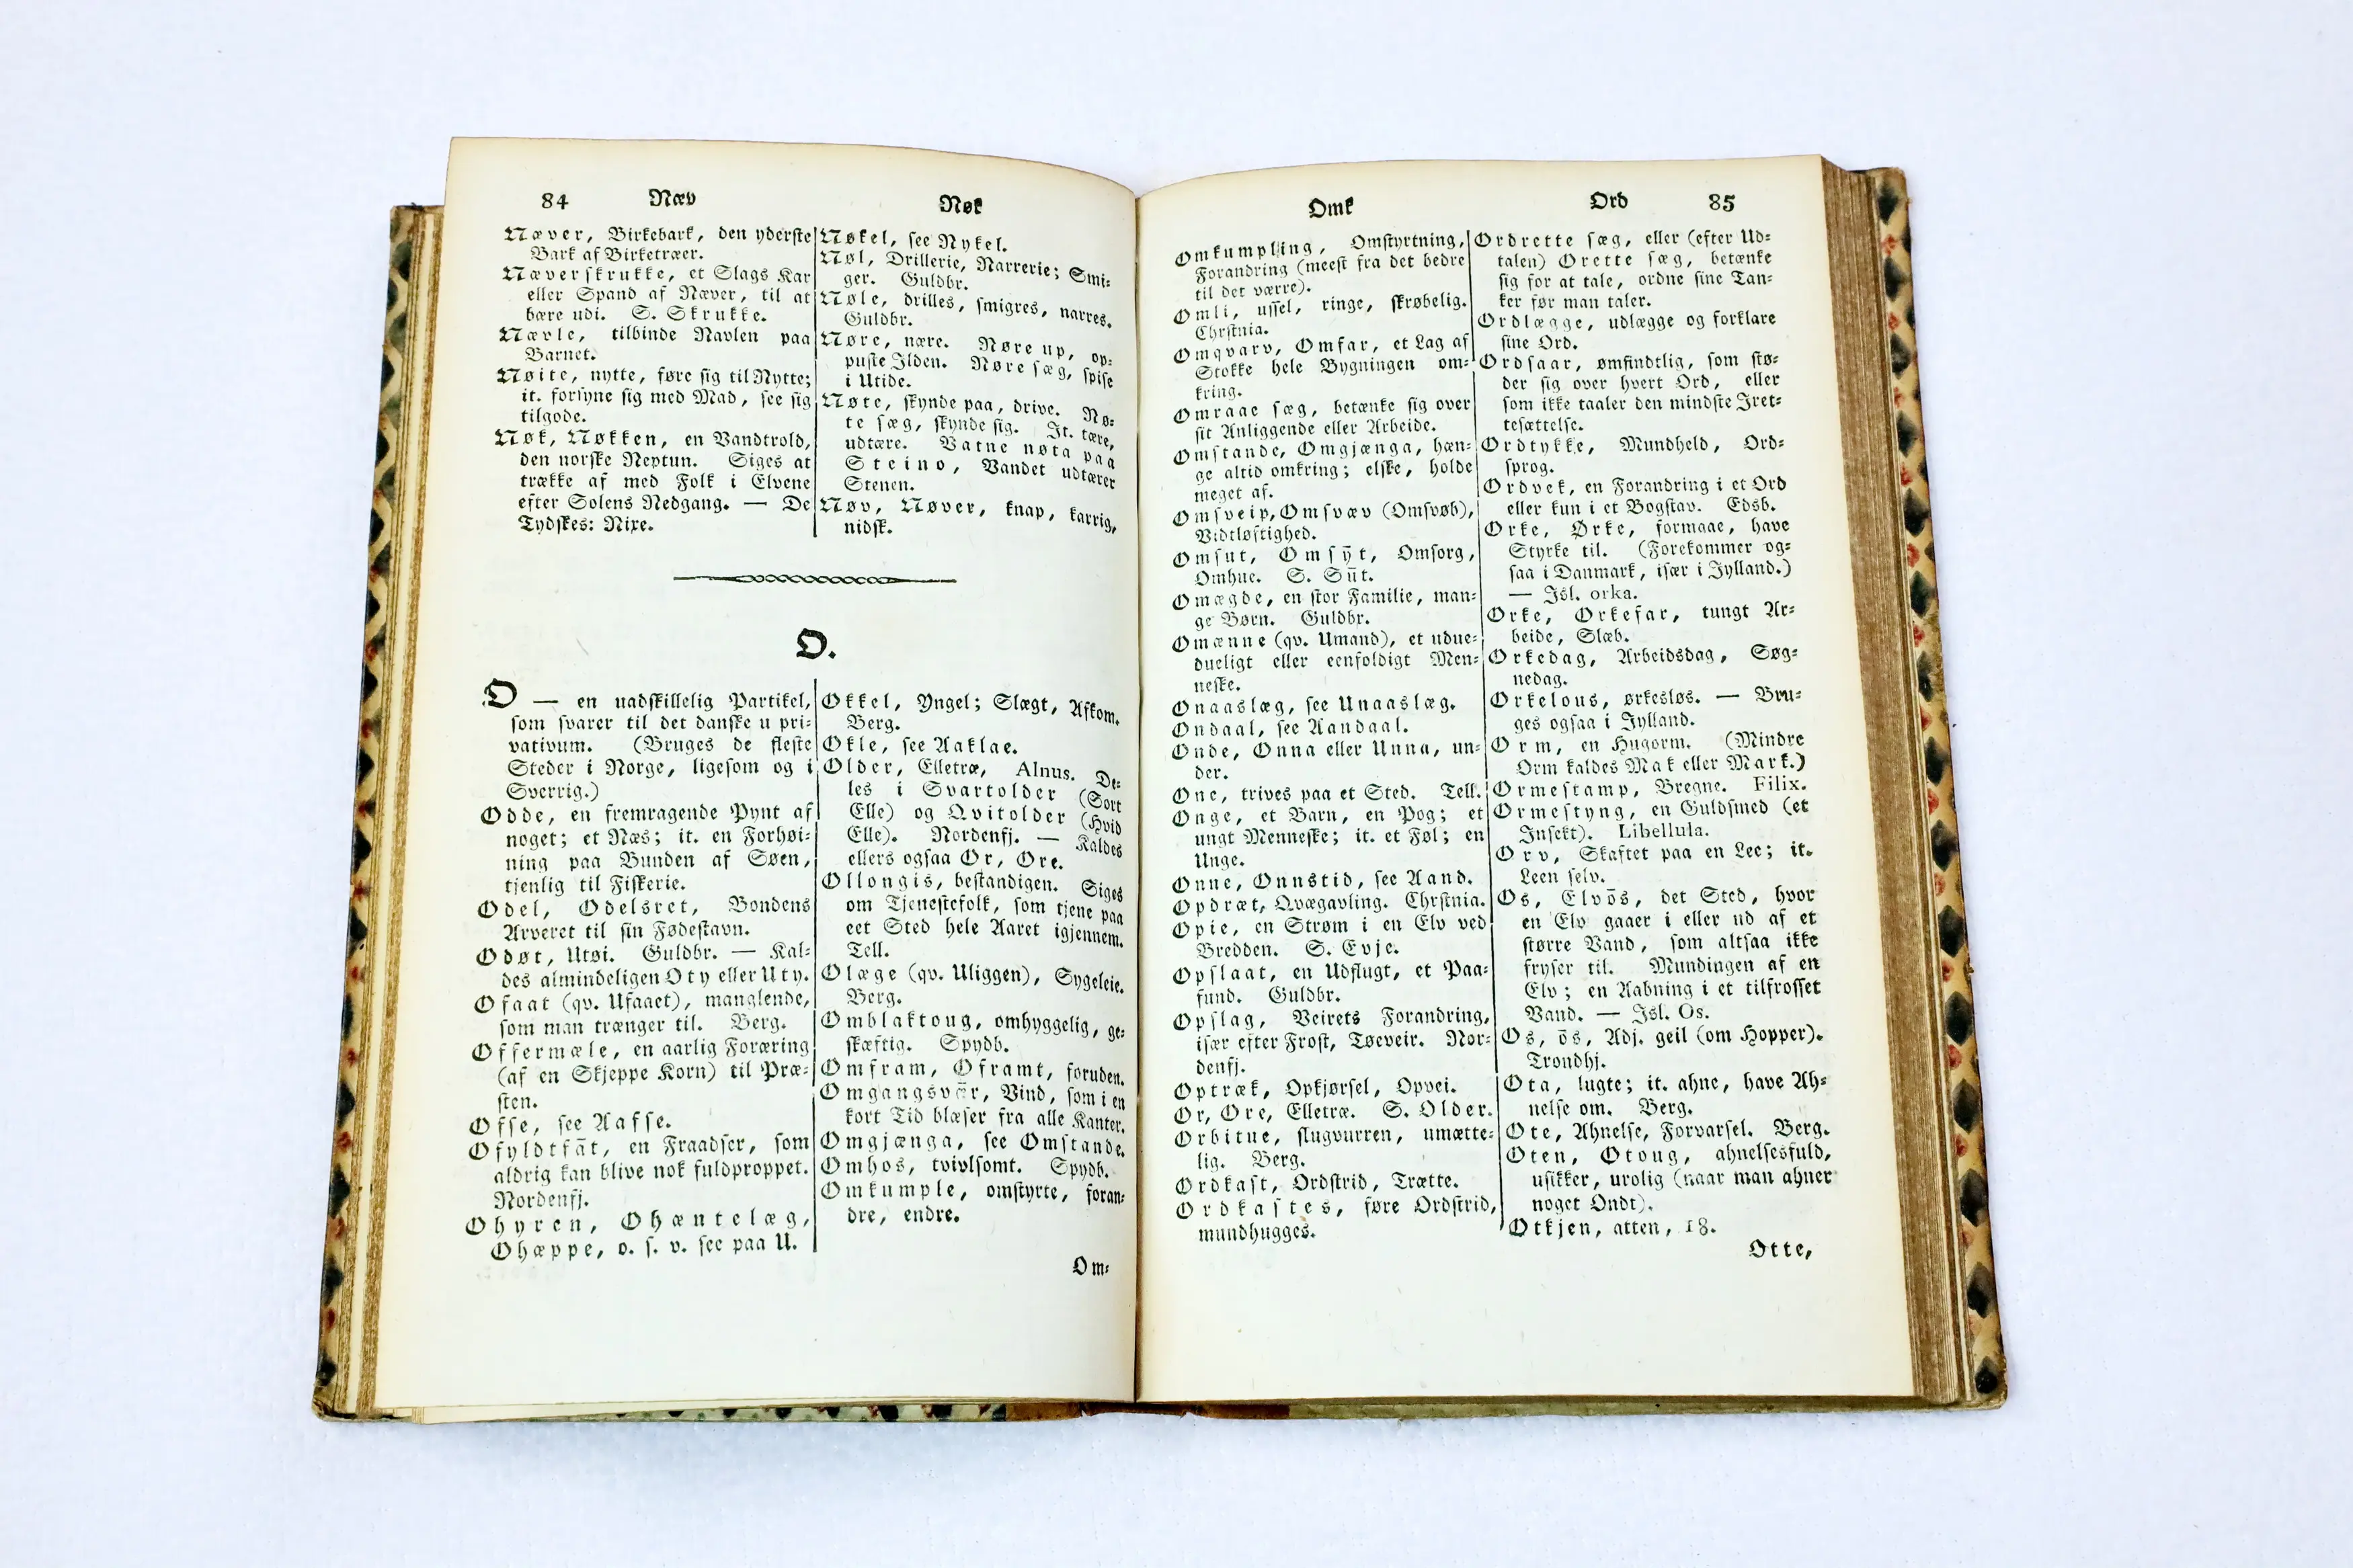 84 Næv Nøk
Næver, Birkebark, den yderste
Bark af Birketræer.
Næverskrukke, et Slags Kar
eller Spand af Næver, til at
bære udi. S. Skrukke.
Nævle, tilbinde Navlen paa
Barnet.
Nøite, nytte, føre sig til Nytte;
it. forsyne sig med Mad, see sig
tilgode.
Nøk, Nøkken, en Vandtrold,
den norske Neptun. Siges at
trække af med Folk i Elvene
efter Solens Nedgang. — De
Tydskes: Nixe.
Nøkel, see Nykel.
Nøl, Drillerie, Narrerie; Smi-
ger. Guldbr.
Nøle, drilles, smigres, narres.
Guldbr.
Nøre, nære. Nøre up, op-
puste Ilden. Nøre sæg, spise
i Utide.
Nøte, skynde paa, drive. Nø-
te sæg, skynde sig. It. tære,
udtære. Vatne nøta paa
Steino, Vandet udtærer
Stenen.
Nøv, Nøver, knap, karrig,
nidsk.
O.
O — en uadskillelig Partikel,
som svarer til det danske u pri-
vativum. (Bruges de fleste
Steder i Norge, ligesom og i
Sverrig.)
Odde, en fremragende Pynt af
noget; et Næs; it. en Forhøi-
ning paa Bunden af Søen,
tjenlig til Fiskerie.
Odel, Odelsret, Bondens
Arveret til sin Fødestavn.
Odøt, Utøi. Guldbr. — Kal-
des almindeligen Oty eller Uty.
Ofaat (qv. Ufaaet), manglende,
som man trænger til. Berg.
Offermæle, en aarlig Foræring
(af en Skjeppe Korn) til Præ-
sten.
Offe, see Aafse.
Ofyldtfāt, en Fraadser, som
aldrig kan blive nok fuldproppet.
Nordenfj.
Ohyren, Ohæntelæg,
Ohæppe, o. s. v. see paa U.
Okkel, Yngel; Slægt, Afkom.
Berg.
Okle, see Aaklae.
Older, Elletræ, Alnus. De-
les i Svartolder (Sort
Elle) og Qvitolder (Hvid
Elle). Nordenfj. — Kaldes
ellers ogsaa Or, Ore.
Ollongis, bestandigen. Siges
om Tjenestefolk, som tjene paa
eet Sted hele Aaret igjennem.
Tell.
Olæge (qv. Uliggen), Sygeleie.
Berg.
Omblaktoug, omhyggelig, ge-
skæftig. Spydb.
Omfram, Oframt, foruden.
Omgangsvār, Vind, som i en
kort Tid blæser fra alle Kanter.
Omgjænga, see Omstande.
Omhos, tvivlsomt. Spydb.
Omkumple, omstyrte, foran-
dre, endre.
Om-
Omk Ord 85
Omkumpling, Omstyrtning,
Forandring (meest fra det bedre
til det værre).
Omli, ussel, ringe, skrøbelig.
Chrstnia.
Omqvarv, Omfar, et Lag af
Stokke hele Bygningen om-
kring.
Omraae sæg, betænke sig over
sit Anliggende eller Arbeide.
Omstande, Omgjænga, hæn-
ge altid omkring; elske, holde
meget af.
Omsveip, Omsvæv (Omsvøb),
Vidtløftighed.
Omsut, Omsȳt, Omsorg,
Omhue. S. Sūt.
Omægde, en stor Familie, man-
ge Børn. Guldbr.
Omænne (qv. Umand), et udue-
dueligt eller eenfoldigt Men-
neske.
Onaaslæg, see Unaaslæg.
Ondaal, see Aandaal.
Onde, Onna eller Unna, un-
der.
One, trives paa et Sted. Tell.
Onge, et Barn, en Pog; et
ungt Menneske; it. et Føl; en
Unge.
Onne, Onnstid, see Aand.
Opdræt, Qvægavling. Chrstnia.
Opie, en Strøm i en Elv ved
Bredden. S. Evje.
Opslaat, en Udflugt, et Paa-
fund. Guldbr.
Opslag, Veirets Forandring,
især efter Frost, Tøeveir. Nor-
denfj.
Optræk, Opkjørsel, Opvei.
Or, Ore, Elletræ. S. Older.
Orbitue, slugvurren, umætte-
lig. Berg.
Ordkast, Ordstrid, Trætte.
Ordkastes, føre Ordstrid,
mundhugges.
Ordrette sæg, eller (efter Ud-
talen) Orette sæg, betænke
sig for at tale, ordne sine Tan-
ker før man taler.
Ordlægge, udlægge og forklare
sine Ord.
Ordsaar, ømfindtlig, som stø-
der sig over hvert Ord, eller
som ikke taaler den mindste Iret-
tesættelse.
Ordtykke, Mundheld, Ord-
sprog.
Ordvek, en Forandring i et Ord
eller kun i et Bogstav. Edsb.
Orke, Ørke, formaae, have
Styrke til. (Forekommer og-
saa i Danmark, især i Jylland.)
— Isl. orka.
Orke, Orkefar, tungt Ar-
beide, Slæb.
Orkedag, Arbeidsdag, Søg-
nedag.
Orkelous, ørkesløs. — Bru-
ges ogsaa i Jylland.
Orm, en Hugorm. (Mindre
Orm kaldes Mak eller Mark.)
Ormestamp, Bregne. Filix.
Ormestyng, en Guldsmed (et
Insekt). Libellula.
Orv, Skaftet paa en Lee; it.
Leen selv.
Os, Elvōs, det Sted, hvor
en Elv gaaer i eller ud af et
større Vand, som altsaa ikke
fryser til. Mundingen af en
Elv; en Aabning i et tilfrosset
Vand. — Isl. Os.
Os, ōs, Adj. geil (om Hopper).
Trondhj.
Ota, lugte; it. ahne, have Ah-
nelse om. Berg.
Ote, Ahnelse, Forvarsel. Berg.
Oten, Otoug, ahnelsesfuld,
usikker, urolig (naar man ahner
noget Ondt).
Otkjen, atten, 18.
Otte,